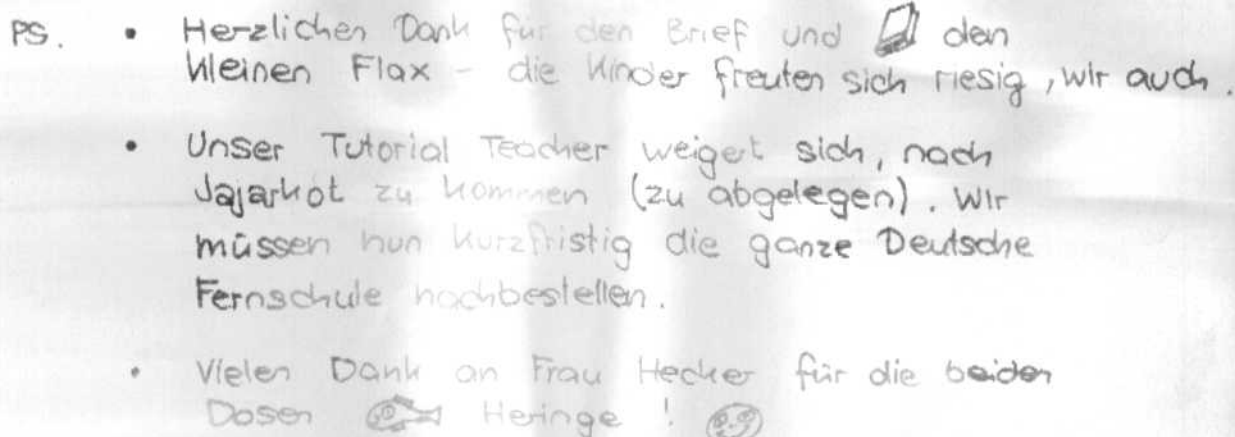 PS. • Herzlichen Dank für den Brief und den
kleinen Flax - die Kinder freuten sich riesig, wir auch.
• Unser Tutorial Teacher weigert sich, nach
Jajarkot zu kommen (zu abgelegen). Wir
müssen nun kurzfristig die ganze Deutsche
Fernschule nachbestellen.
• Vielen Dank an Frau Hecker für die beiden
Dosen Heringe !